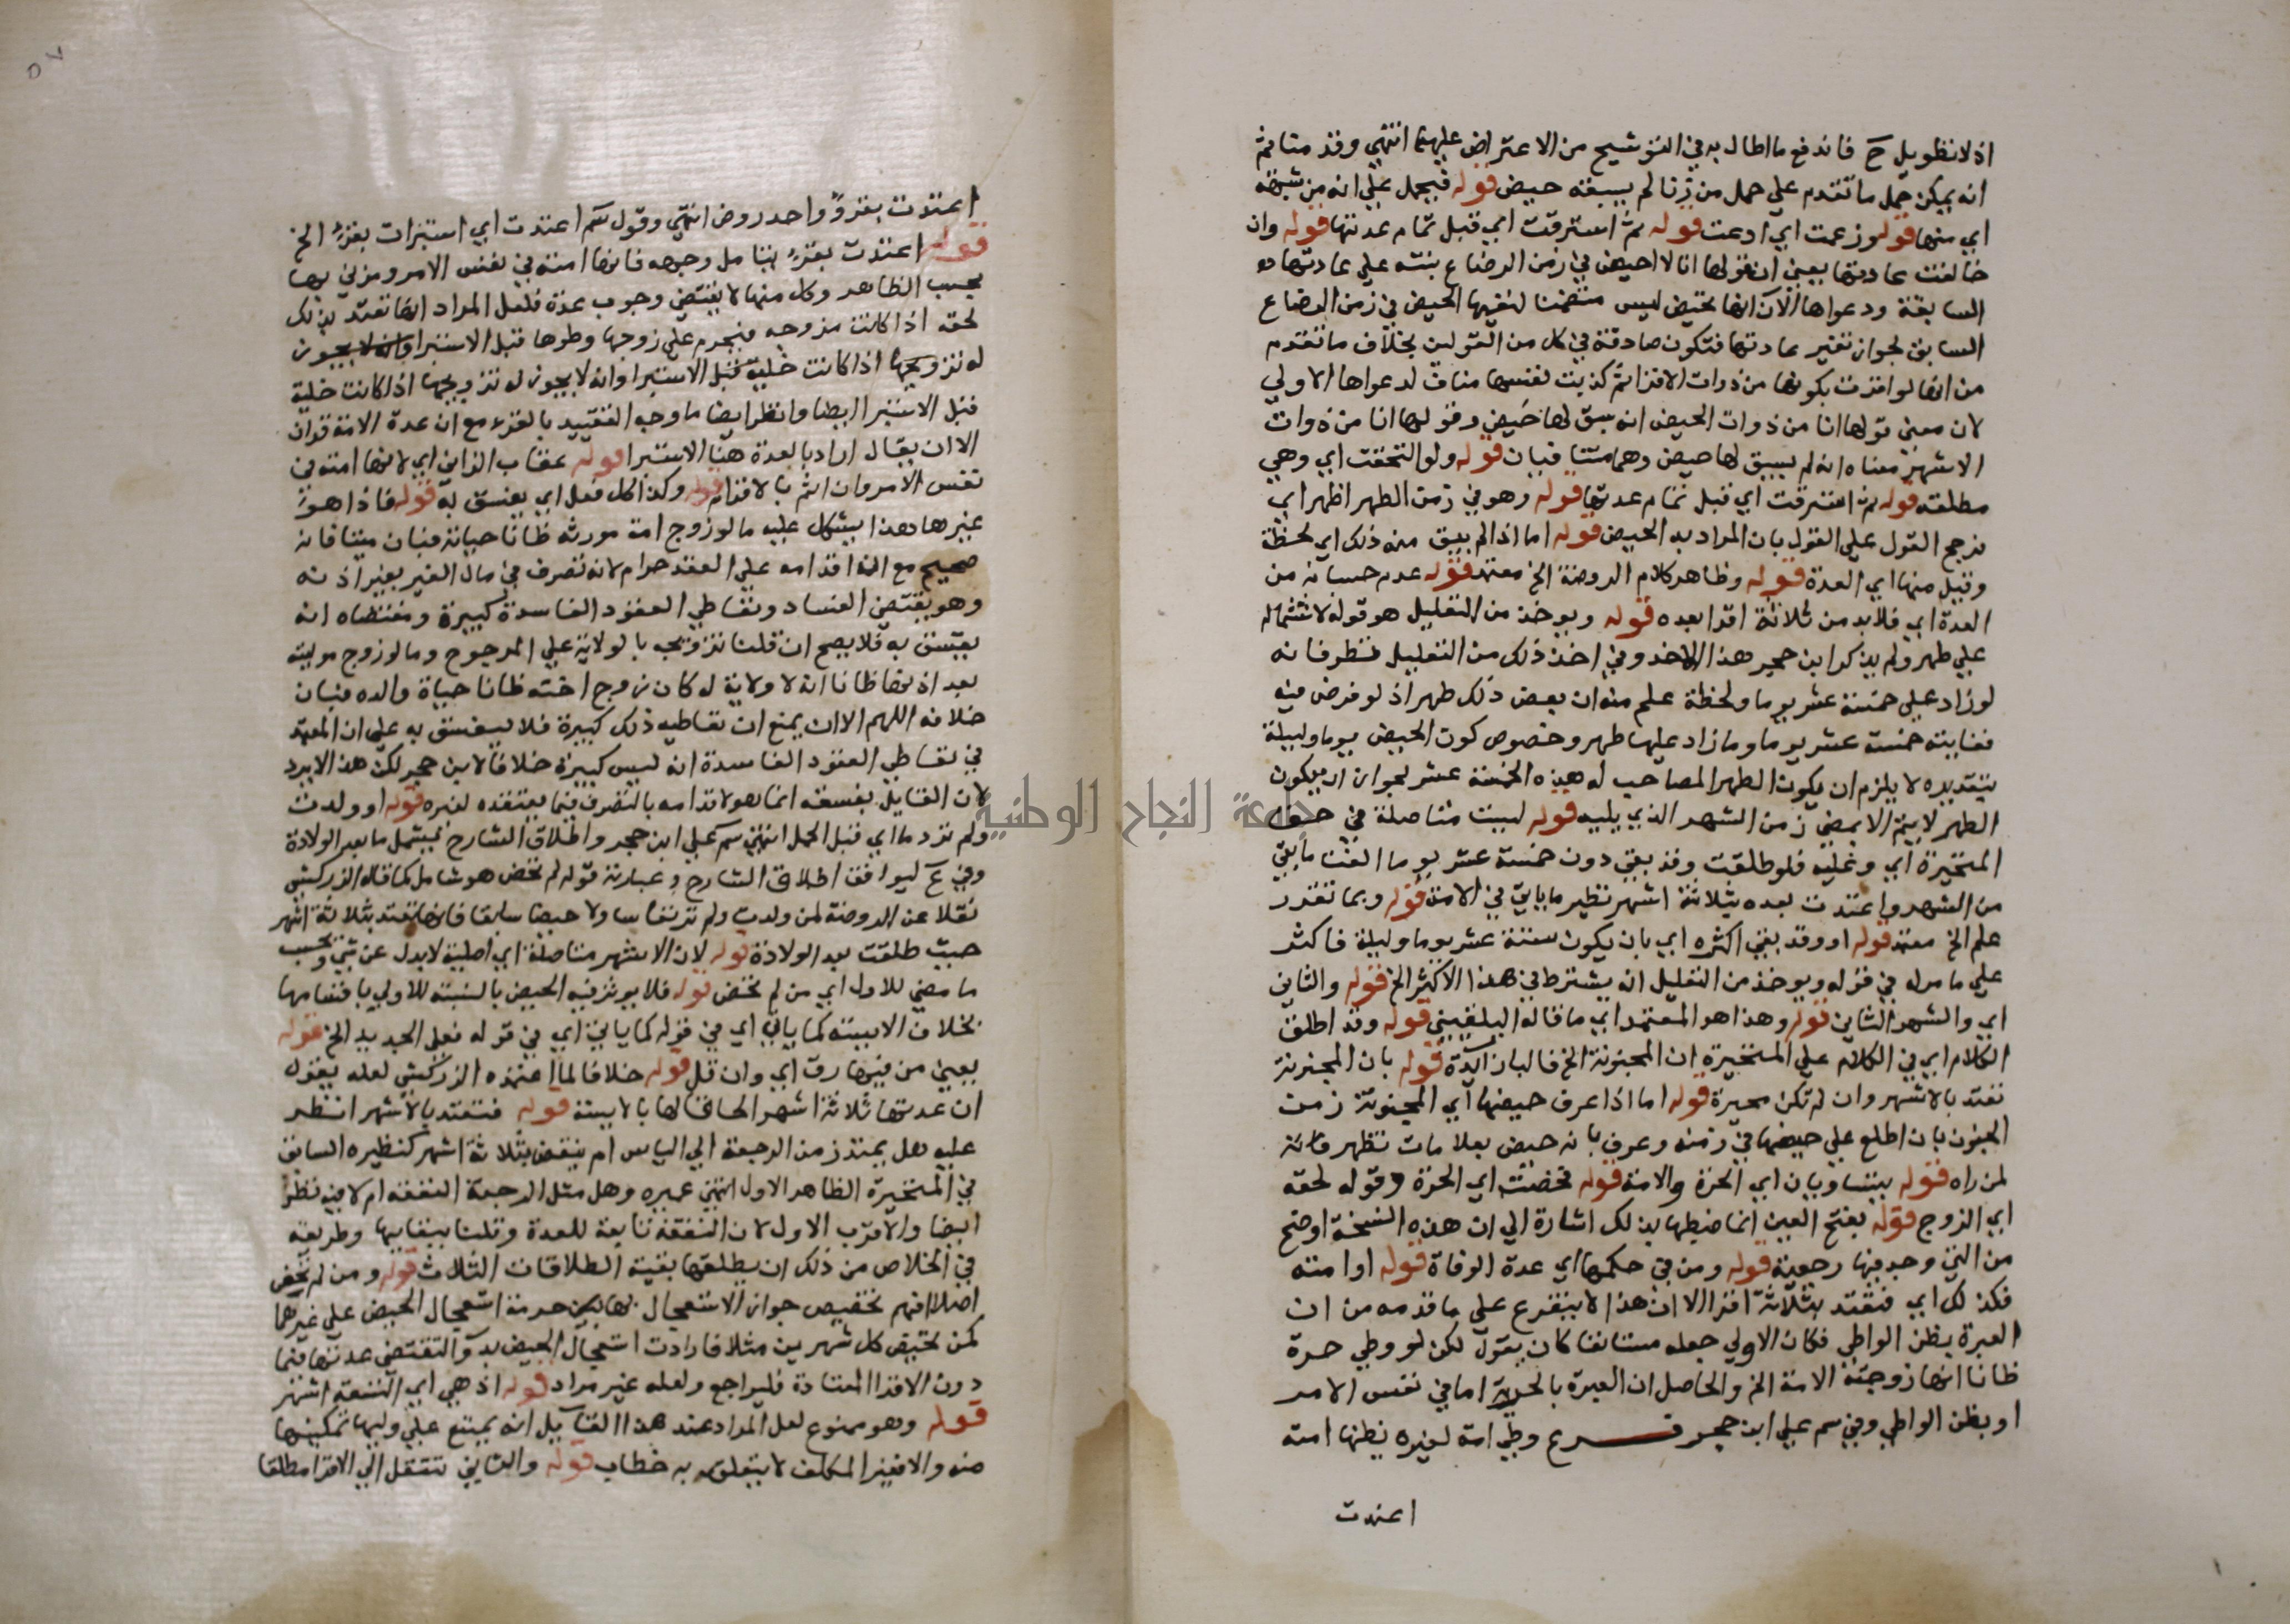 اذ لا تطويل ح فاندفع ما اطال به في التوشيح من الاعتراض عليهما انتهي وقد
انه يمكن حمل ما تقدم علي حمل من زنا لم يسبقه حيض قوله فيحمل علي انه من شبهة
اي منها قوله وزعمت اي ادعت قوله ثم استرقت اي قبل تمام عدتها قوله وان
خالفت عادتها يعني ان قولها انا لا احيض في زمن الرضاع بنته علي عادتها
السابقة ودعواها الآن انها تحيض ليس متضمنا لنفيها الحيض في زمن الرضاع
السابق لجواز تغير عادتها فتكون صادقة في كل من القولين بخلاف ما تقدم
من انها لو اقرت بكونها من ذوات الاقرا ثم كذبت نفسها مناف لدعواها الاولي
لان معني قولها انا من ذوات الحيض انه سبق لها حيض وقولها انا من ذوات
الاشهر معناه انه لم يسبق لها حيض وهما متنافيان قوله ولو التحقت اي وهي
مطلقة قوله ثم استرقت اي قبل تمام عدتها قوله وهو في زمن الطهر اظهر اي
فرجح القول علي القول بان المراد به الحيض قوله اما اذا لم يبق منه ذلك اي لحظة
وقبل منها اي العدة قوله وظاهر كلام الروضة الخ معتمد قوله عدم حسبانه من
العدة اي فلا بد من ثلاثة اقرا بعده قوله ويوخذ من التعليل هو قوله لاشتماله
علي طهر ولم يذكر ابن حجر هذا الاخذ وفي اخذ ذلك من التعليل نظر فانه
لو زاد علي خمسة عشر يوما ولحظة علم منه ان بعض ذلك طهر اذ لو فرض فيه
فغايته خمسة عشر يوما وما زاد عليها طهر وخصوص كون الحيض يوما وليلة
بتقديره لا يلزم ان يكون الطهر المصاحب له هذه الخمسة عشر لجواز ان يكون
الطهر لا يتم الا بمضي زمن الشهر الذي يليه قوله ليست متاصلة في حق
المتحيرة اي وعليه فلو طلقت وقد بقي دون خمسة عشر يوما الغت ما بقي
من الشهر واعتدت بعده بثلاثة اشهر نظير ما ياتي في الامة قوله وبما تقرر
علم الخ معتمد قوله او وقد بقي اكثره اي بان يكون ستة عشر يوما وليلة فاكثر
علي ما مر له في قوله ويوخذ من التعليل انه يشترط في هذا الاكثر الخ قوله والثاني
اي والشهر الثاني قوله وهذا هو المعتمد اي ما قاله البلقيني قوله وقد اطلق
الكلام اي في الكلام علي المتحيرة ان المجنونة الخ فالبا زائدة قوله بان المجنونة
تعتد بالاشهر وان لم تكن محيرة قوله اما اذا عرف حيضها اي المجنونة زمن
الجنون بان اطلع علي حيضها في زمنه وعرف بانه حيض بعلامات تظهر
لمن راه قوله يتساويان اي الحرة والامة قوله تحضت اي الحرة وقوله لحقه
اي الزوج قوله بفتح العين انما ضبطها بذلك اشارة الي ان هذه النسخة اوضح
من التي وجد فيها رجعية قوله ومن في حكمها اي عدة الوفاة قوله او امته
فكذلك اي فتعتد بثلاثة اقرا الا ان هذا لا يتفرع علي ما قدمه من ان
العبرة بظن الواطي فكان الاولي جعله مستانفا كان يقول لكن لو وطي حرة
ظانا انها زوجته الامة الخ والحاصل ان العبرة بالحرية اما في نفس الامر
او بظن الواطي وفي سم علي ابن حجر فرع وطي امة لغيره يظنها امته
اعتدت
اعتدت بقرء واحد روض انتهي وقول سم اعتدت اي استبرات بقرء الخ
قوله اعتدت بقرء يتامل وجهه فانها امته في نفس الامر ومزني بها
بحسب الظاهر وكل منها لا يقتضي وجوب عدة فلعل المراد انها تعتد بذلك
لحقه اذا كانت مزوجه فيحرم علي زوجها وطوها قبل الاستبرا وانه لا يجوز
له تزويجها اذا كانت خلية قبل الاستبرا وانه لا يجوز له تزويجها اذا كانت خلية
قبل الاستبرا ايضا وانظر ايضا ما وجه التقييد بالقرء مع ان عدة الامة قرآن
الا ان يقال اراد بالعدة هنا الاستبرا قوله عقاب الزاني اي لانها امته في
نفس الامر وان اثم بالاقدام قوله وكذا كل فعل اي يفسق به قوله فاذا هو
غيرها وهذا يشكل عليه ما لو زوج امة مورثه ظانا حياته فبان ميتا فانه
صحيح مع ان اقدامه علي العقد حرام لانه تصرف في مال الغير بغير اذنه
وهو يقتضي الفساد وتعاطي العقود الفاسدة كبيرة ومقتضاه انه
يفسق به فلا يصح ان قلنا تزويجه بالولاية علي المرجوح وما لو زوج موليته
بعد اذنها ظانا انه لا ولاية له كان زوج اخته ظانا حياة والده فبان
خلافه اللهم الا ان يمنع ان تعاطيه ذلك كبيرة فلا يفسق به علي ان المعتمد
في تعاطي العقود الفاسدة انه ليس كبيرة خلافا لابن حجر لكن هذا لا يرد
لان القايل بفسقه انما هو لاقدامه بالتصرف فيما يعتقده لغيره قوله او ولدت
ولم تر دما اي قبل الحمل انتهي سم علي ابن حجر واطلاق الشارح يشمل ما بعد الولادة
وفي ع ليوافق اطلاق الشارح وعبارته قوله لم تحض هو شامل كما قاله الزركشي
نقلا عن الروضة لمن ولدت ولم تر نفاسا ولا حيضا سابقا فانها تعتد بثلاثة اشهر
حيث طلقت بعد الولادة قوله لان الاشهر متاصلة اي اصلية لا بدل عن شي وتحسب
ما مضي للاول اي من لم تحض قوله فلا يوثر فيه الحيض بالنسبة للاولي بانقضائها
بخلاف الايسة كما ياتي اي في قوله كما ياتي اي في قوله فعلي الجديد الخ قوله
يعني من فيها رق اي وان قل قوله خلافا لما اعتمده الزركشي لعله يقول
ان عدتها ثلاثة اشهر الحاقا لها بالايسة قوله فتعتد بالاشهر انظر
عليه هل يمتد زمن الرجعة الي الياس ام ينقضي بثلاثة اشهر كنظيره السابق
في المتحيرة الظاهر الاول انتهي عميره وهل مثل الرجعة النفقة ام لا فيه نظر
ايضا والاقرب الاول لان النفقة تابعة للعدة وقلنا ببقايها وطريقه
في الخلاص من ذلك ان يطلقها بقية الطلاقات الثلاث قوله ومن لم تحض
اصلا افهم تخصيص جواز الاستعجال بها يكن حرمة استعجال الحيض علي غيرها
كمن تحيض كل شهرين مثلا فارادت استعجال الحيض بدوا لتنقضي عدتها فيما
دون الاقرا المعتادة فليراجع ولعله غير مراد قوله اذ هي اي التسعة اشهر
قوله وهو ممنوع لعل المراد عند هذا القايل انه يمتنع علي وليها تمكينها
منه والا فغير المكلف لا يتعلق به خطاب قوله والثاني تنتقل الي الاقرا مطلقا
جامعة النجاح الوطنية